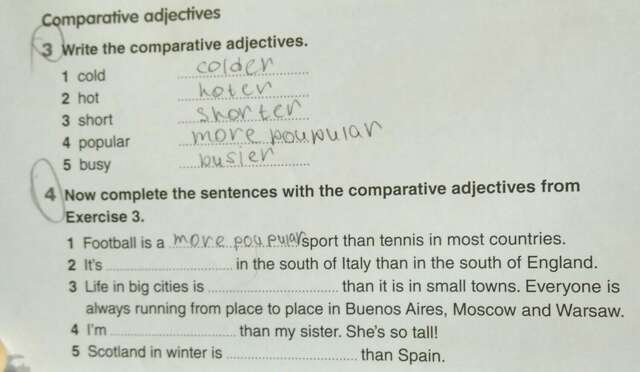 Comparative adjectives
3 Write the comparative adjectives.
1 cold colder
2 hot hoter
3 short shorter
4 popular more poupular
5 busy busier
4 Now complete the sentences with the comparative adjectives from
Exercise 3.
1 Football is a more poupular sport than tennis in most countries.
2 It's ........................ in the south of Italy than in the south of England.
3 Life in big cities is ........................ than it is in small towns. Everyone is
always running from place to place in Buenos Aires, Moscow and Warsaw.
4 I'm ........................ than my sister. She's so tall!
5 Scotland in winter is ........................ than Spain.